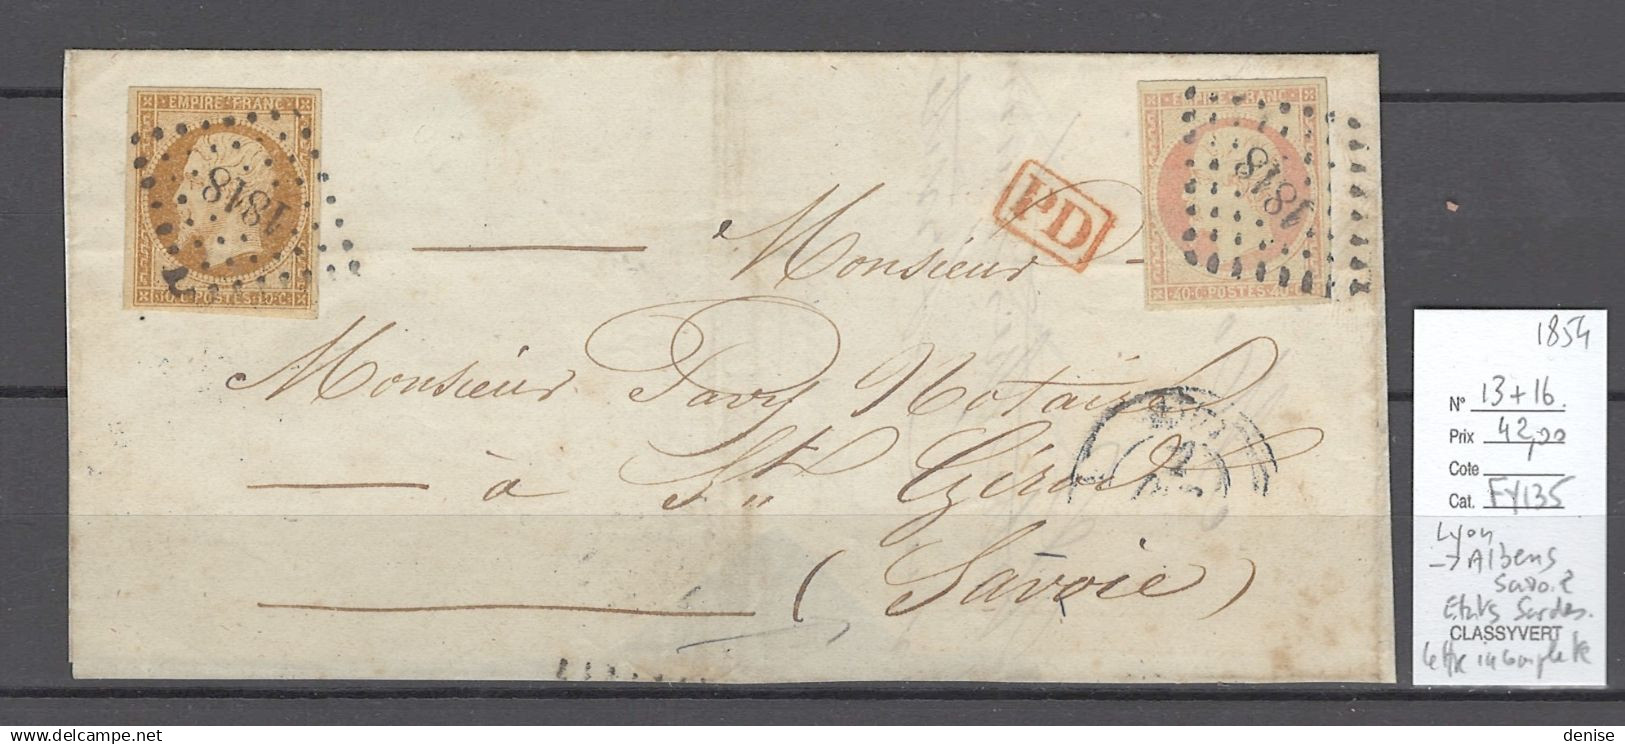 EMPIRE·FRANC·
1818
10·C·POSTES·10·C·
EMPIRE·FRANC·
1818
40·C·POSTES·40·C
PD
Monsieur
Monsieur Pavy Notaire
à St Gérod
(Savoie)
1854
N° 13+16.
Prix 42,00
Cote
Cat. FY135
Lyon
→ Albens
Savoie
Etats Sardes.
CLASSYVERT
lettre incomplete
denise